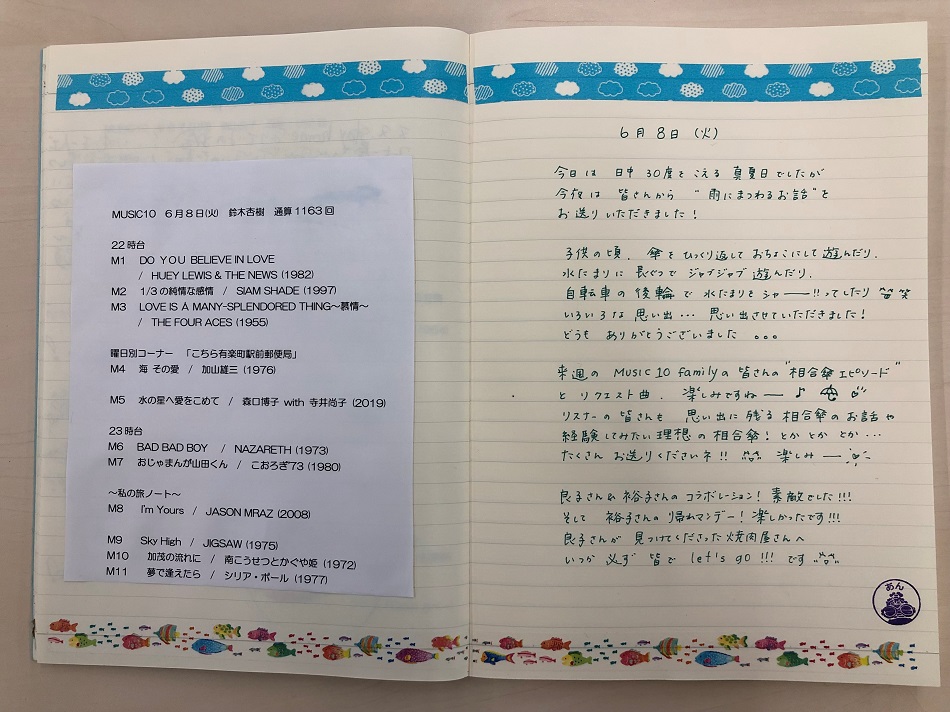 MUSIC10 6月8日(火) 鈴木杏樹 通算1163回
22時台
M1 DO YOU BELIEVE IN LOVE
/ HUEY LEWIS & THE NEWS (1982)
M2 1/3の純情な感情 / SIAM SHADE (1997)
M3 LOVE IS A MANY-SPLENDORED THING~慕情~
/ THE FOUR ACES (1955)
曜日別コーナー 「こちら有楽町駅前郵便局」
M4 海 その愛 / 加山雄三 (1976)
M5 水の星へ愛をこめて / 森口博子 with 寺井尚子 (2019)
23時台
M6 BAD BAD BOY / NAZARETH (1973)
M7 おじゃまんが山田くん / こおろぎ'73 (1980)
~私の旅ノート~
M8 I'm Yours / JASON MRAZ (2008)
M9 Sky High / JIGSAW (1975)
M10 加茂の流れに / 南こうせつとかぐや姫 (1972)
M11 夢で逢えたら / シリア・ポール (1977)
6月8日 (火)
今日は 日中 30度をこえる 真夏日でしたが
今夜は 皆さんから "雨にまつわるお話"を
お送りいただきました!
子供の頃、傘をひっくり返して おちょこにして遊んだり、
水たまりに 長ぐつで ジャブジャブ 遊んだり、
自転車の 後輪で 水たまりを シャー――!!ってしたり 笑
いろいろな 思い出… 思い出させていただきました!
どうも ありがとうございました 。。。
来週の MUSIC10 familyの 皆さんの "相合傘エピソード"
と リクエスト曲、 楽しみですねー ♪
リスナーの 皆さんも 思い出に残る 相合傘のお話や
経験してみたい 理想の 相合傘! とか とか とか…
たくさん お送りくださいネ!! 楽しみー
良子さん&裕子さんの コラボレーション! 素敵でした!!!
そして 裕子さんの 帰れマンデー! 楽しかったです!!!
良子さんが 見つけてくださった 焼肉屋さんへ
いつか 必ず 皆で let's go!!! です
あん